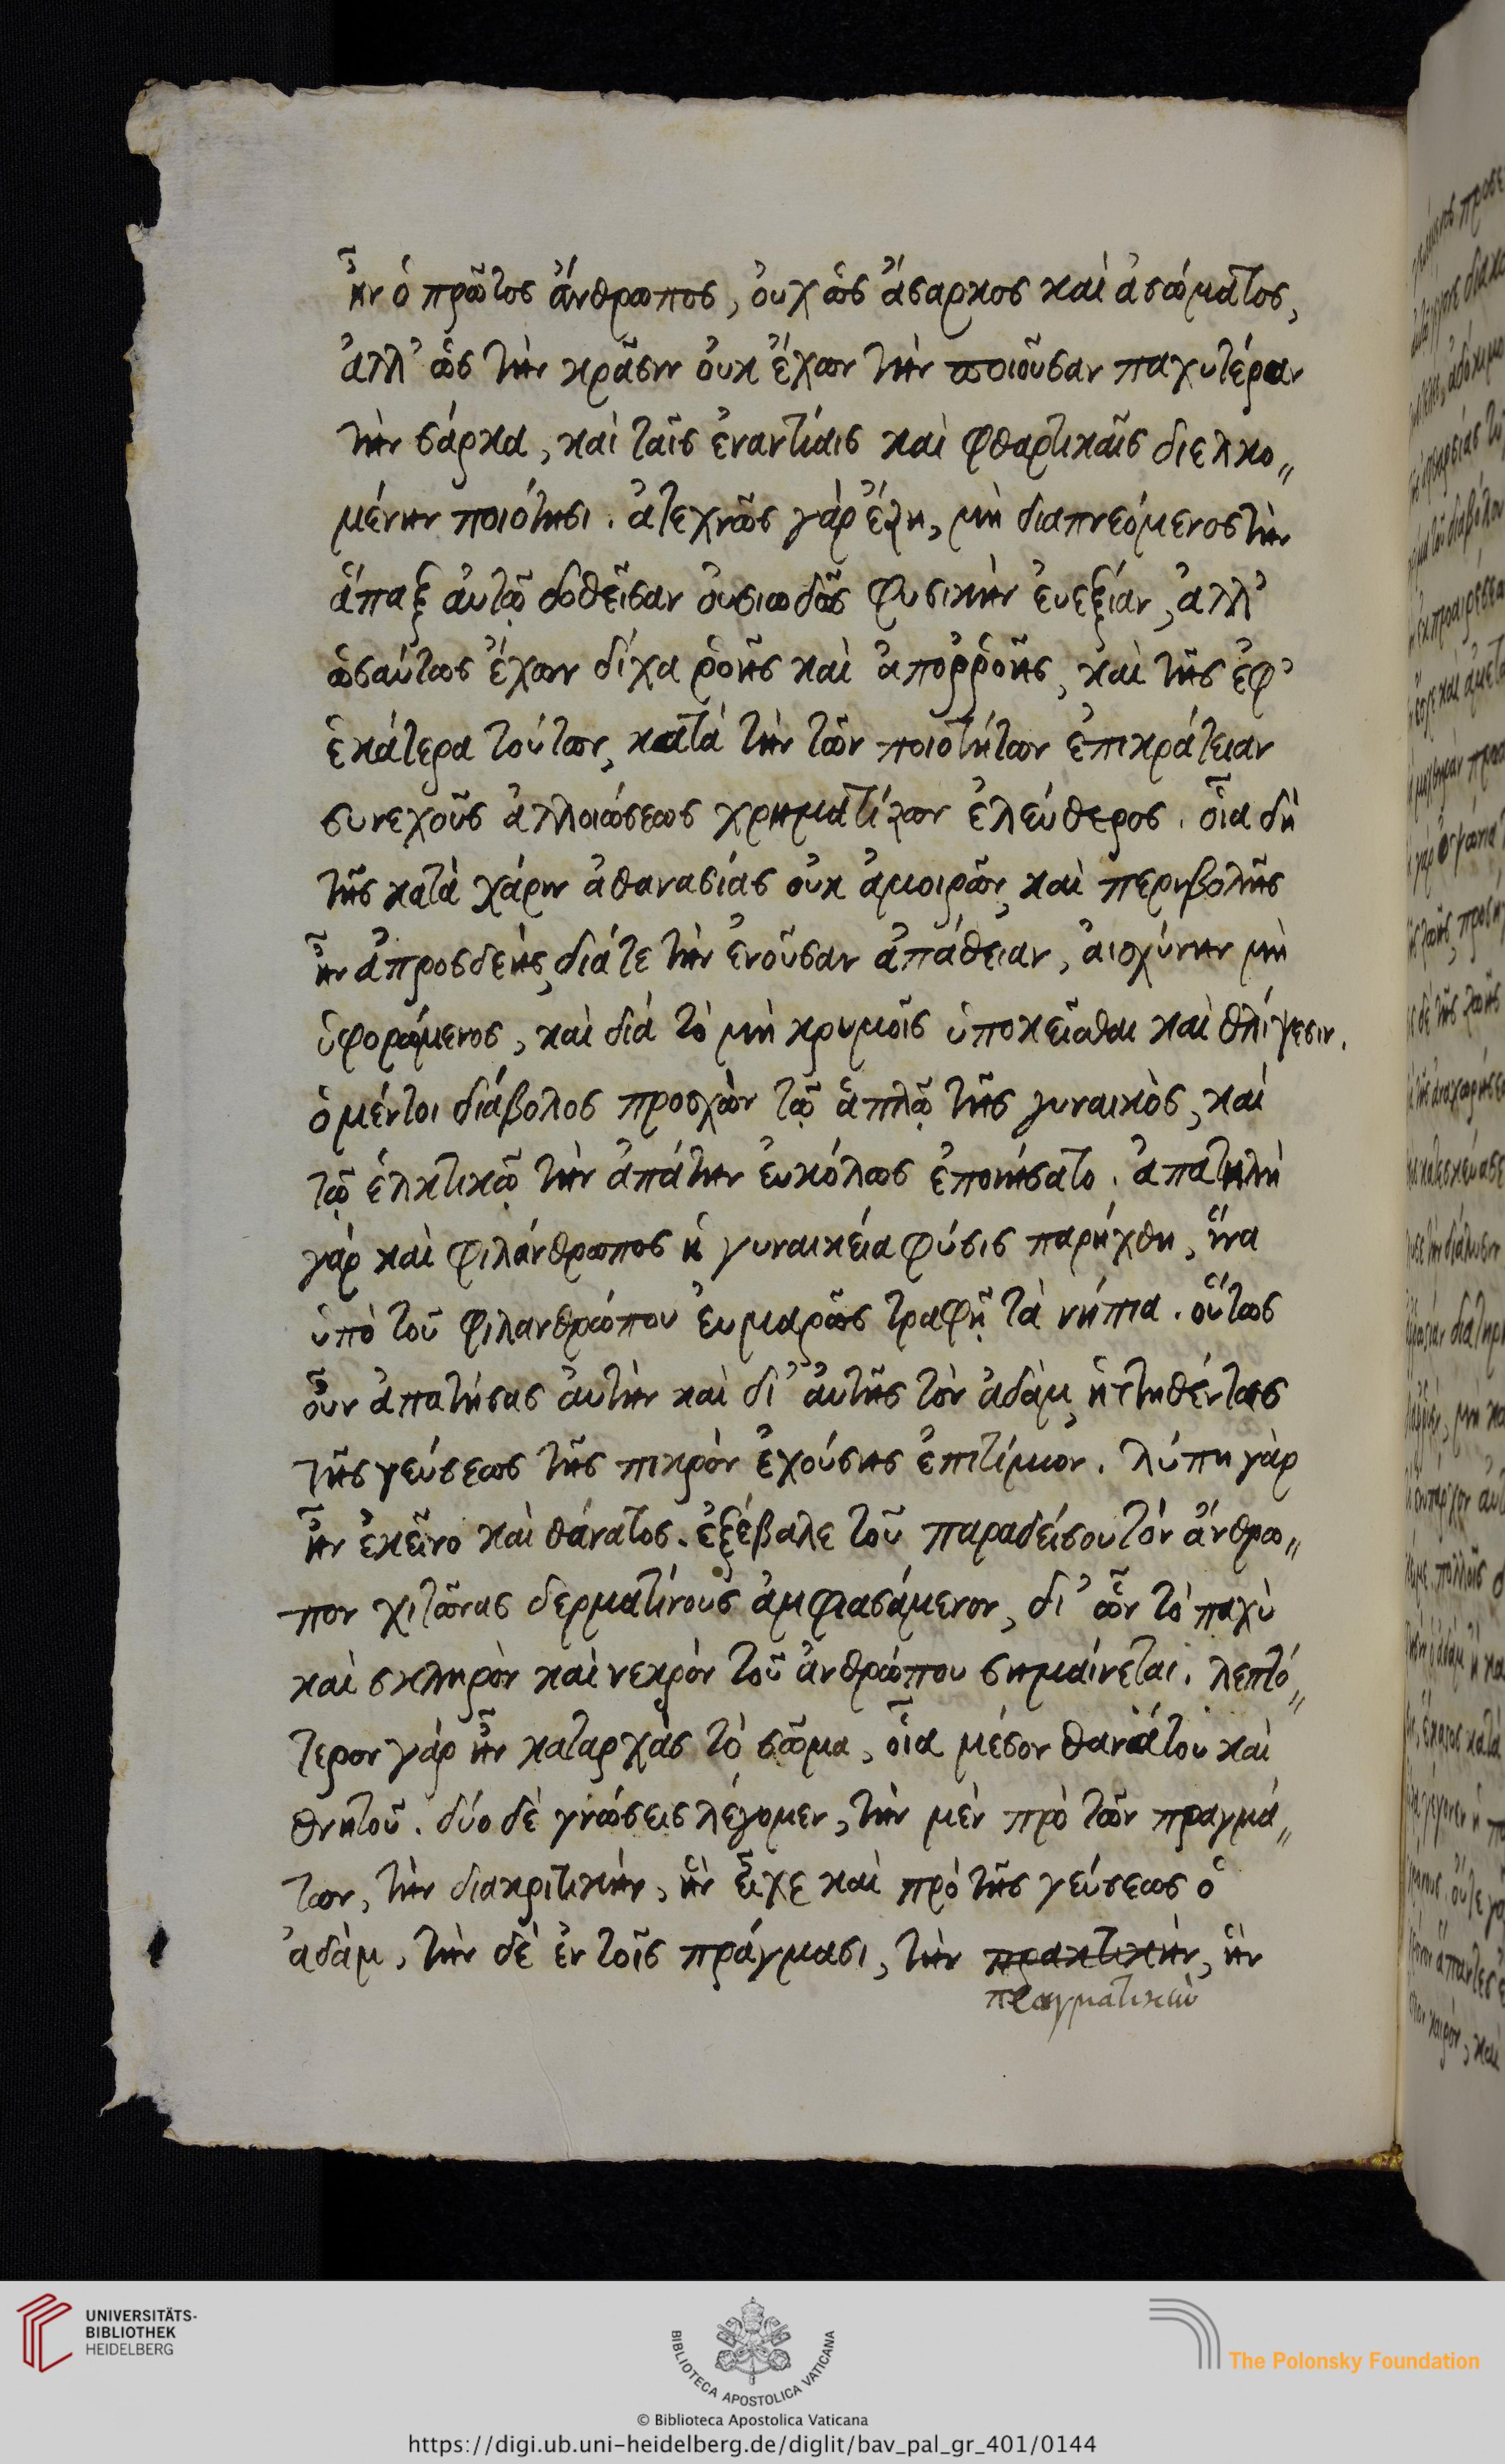 ἦν ὁ πρῶτος ἄνθρωπος, οὐχ ὡς ἄσαρκος καὶ ἀσώματος,
ἀλλ' ὡς τὴν κρᾶσιν οὐκ ἔχων τὴν ποιοῦσαν παχυτέραν
τὴν σάρκα, καὶ ταῖς ἐναντίαις καὶ φθαρτικαῖς διελκο„
μένην ποιότησι. ἀτεχνῶς γὰρ ἔζη, μὴ διαπνεόμενος τὴν
ἅπαξ ἀυτῷ δοθεῖσαν ὀυσιωδῶς φυσικὴν ἐυεξίαν, ἀλλ'
ὡσαύτως ἔχων δίχα ῥοῆς καὶ ἀποῤῥοῆς, καὶ τῆς ἐφ'
ἑκάτερα τούτων, κατὰ τὴν τῶν ποιοτήτων ἐπικράτειαν
συνεχοῦς ἀλλοιώσεως χρηματίζων ἐλεύθερος. οἷα δὴ
τῆς κατὰ χάριν ἀθανασίας οὐκ ἀμοιρῶν, καὶ περιβολῆς
ἦν ἀπροσδεής, διάτε τὴν ἐνοῦσαν ἀπάθειαν, ἀισχύνην μὴ
ὑφορώμενος, καὶ διὰ τὸ μὴ κρυμοῖς ὑποκεῖσθαι καὶ θλίψεσιν.
ὁ μέντοι διάβολος προσχὼν τῷ ἁπλῷ τῆς γυναικὸς, καὶ
τῷ ἑλκτικῷ τὴν ἀπάτην ἐυκόλως ἐποιήσατο. ἀπατηλὴ
γὰρ καὶ φιλάνθρωπος ἡ γυναικεία φύσις παρήχθη, ἵνα
ὑπὸ τοῦ φιλανθρώπου ἐυμαρῶς τραφῇ τὰ νήπια. οὕτως
οὖν ἀπατήσας ἀυτὴν καὶ δι' ἀυτῆς τὸν ἀδὰμ, ἡττηθέντας
τῆς γεύσεως τῆς πικρὸν ἐχούσης ἐπιτίμιον. λύπη γὰρ
ἦν ἐκεῖνο καὶ θάνατος. ἐξέβαλε τοῦ παραδείσου τὸν ἄνθρω„
πον χιτῶνας δερματίνους ἀμφιασάμενον, δι' ὧν τὸ παχὺ
καὶ σκληρὸν καὶ νεκρὸν τοῦ ἀνθρώπου σημαίνεται. λεπτό„
τερον γὰρ ἦν καταρχὰς τὸ σῶμα, οἷα μέσον θανάτου καὶ
θνητοῦ. δύο δὲ γνώσεις λέγομεν, τὴν μὲν πρὸ τῶν πραγμά„
των, τὴν διακριτικὴν, ἣν εἶχε καὶ πρὸ τῆς γεύσεως ὁ
ἀδὰμ, τὴν δὲ ἐν τοῖς πράγμασι, τὴν πρακτικὴν, ἣν
πραγματικὴν
UNIVERSITÄTS-
BIBLIOTHEK
HEIDELBERG
BIBLIOTECA APOSTOLICA VATICANA
The Polonsky Foundation
© Biblioteca Apostolica Vaticana
https://digi.ub.uni-heidelberg.de/diglit/bav_pal_gr_401/0144